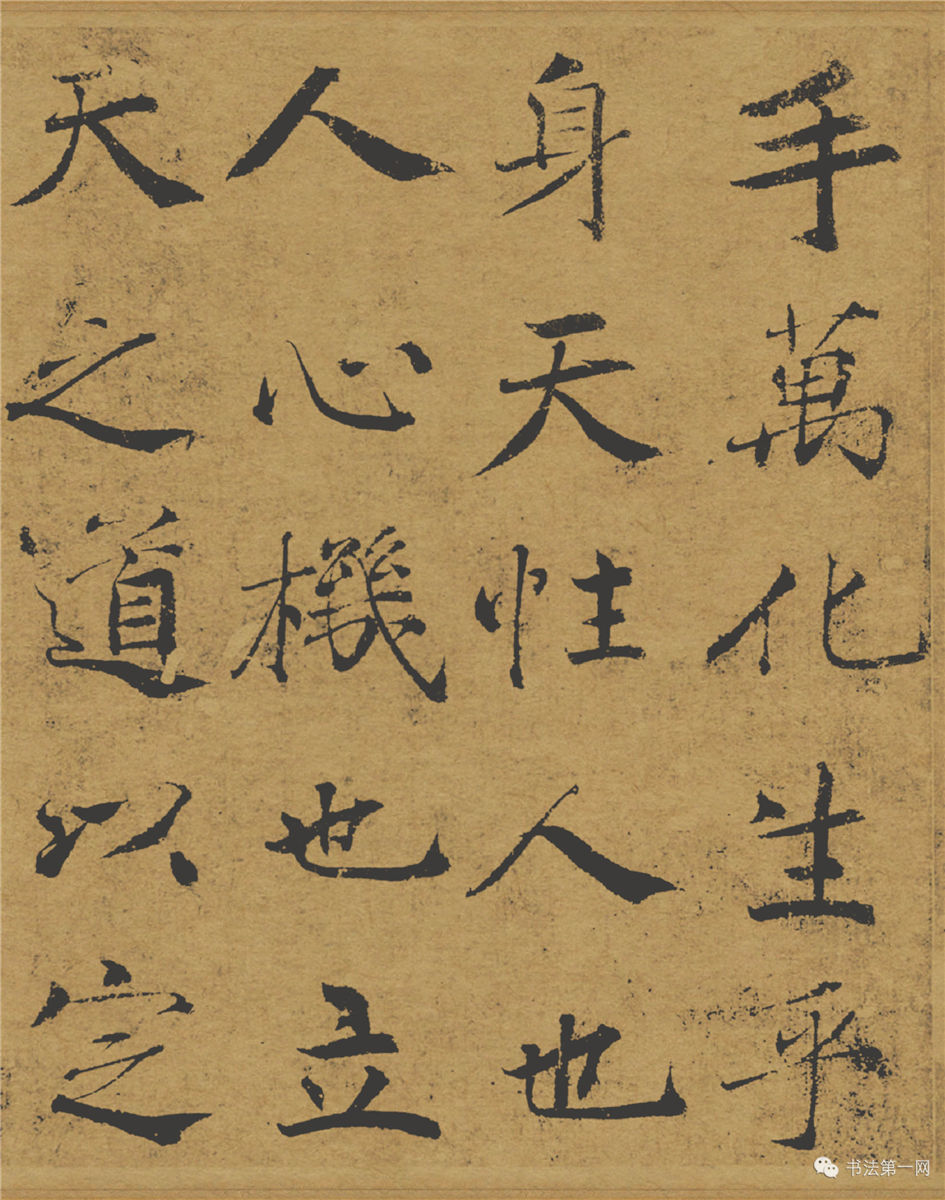 手萬化生乎
身天性人也
人心機也立
天之道以定
书法第一网